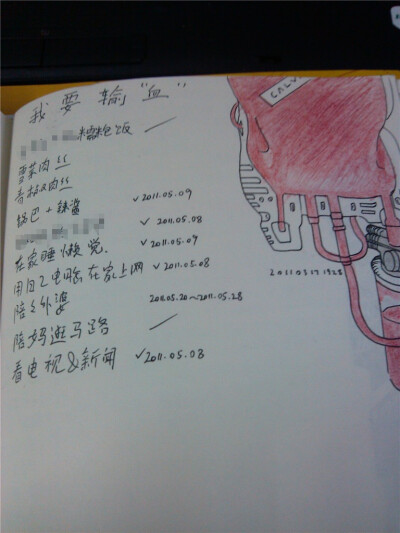 我要输"血"
糍粑饭
雪菜肉丝
青椒肉丝
锅巴+辣酱 ✓2011.05.09
✓2011.05.08
在家睡懒觉. ✓2011.05.09
用自己电脑在家上网 ✓2011.05.08
陪陪外婆 2011.05.20~2011.05.28
陪妈逛马路
看电视&新闻 ✓2011.05.08
CALV
2011 05 17 1928